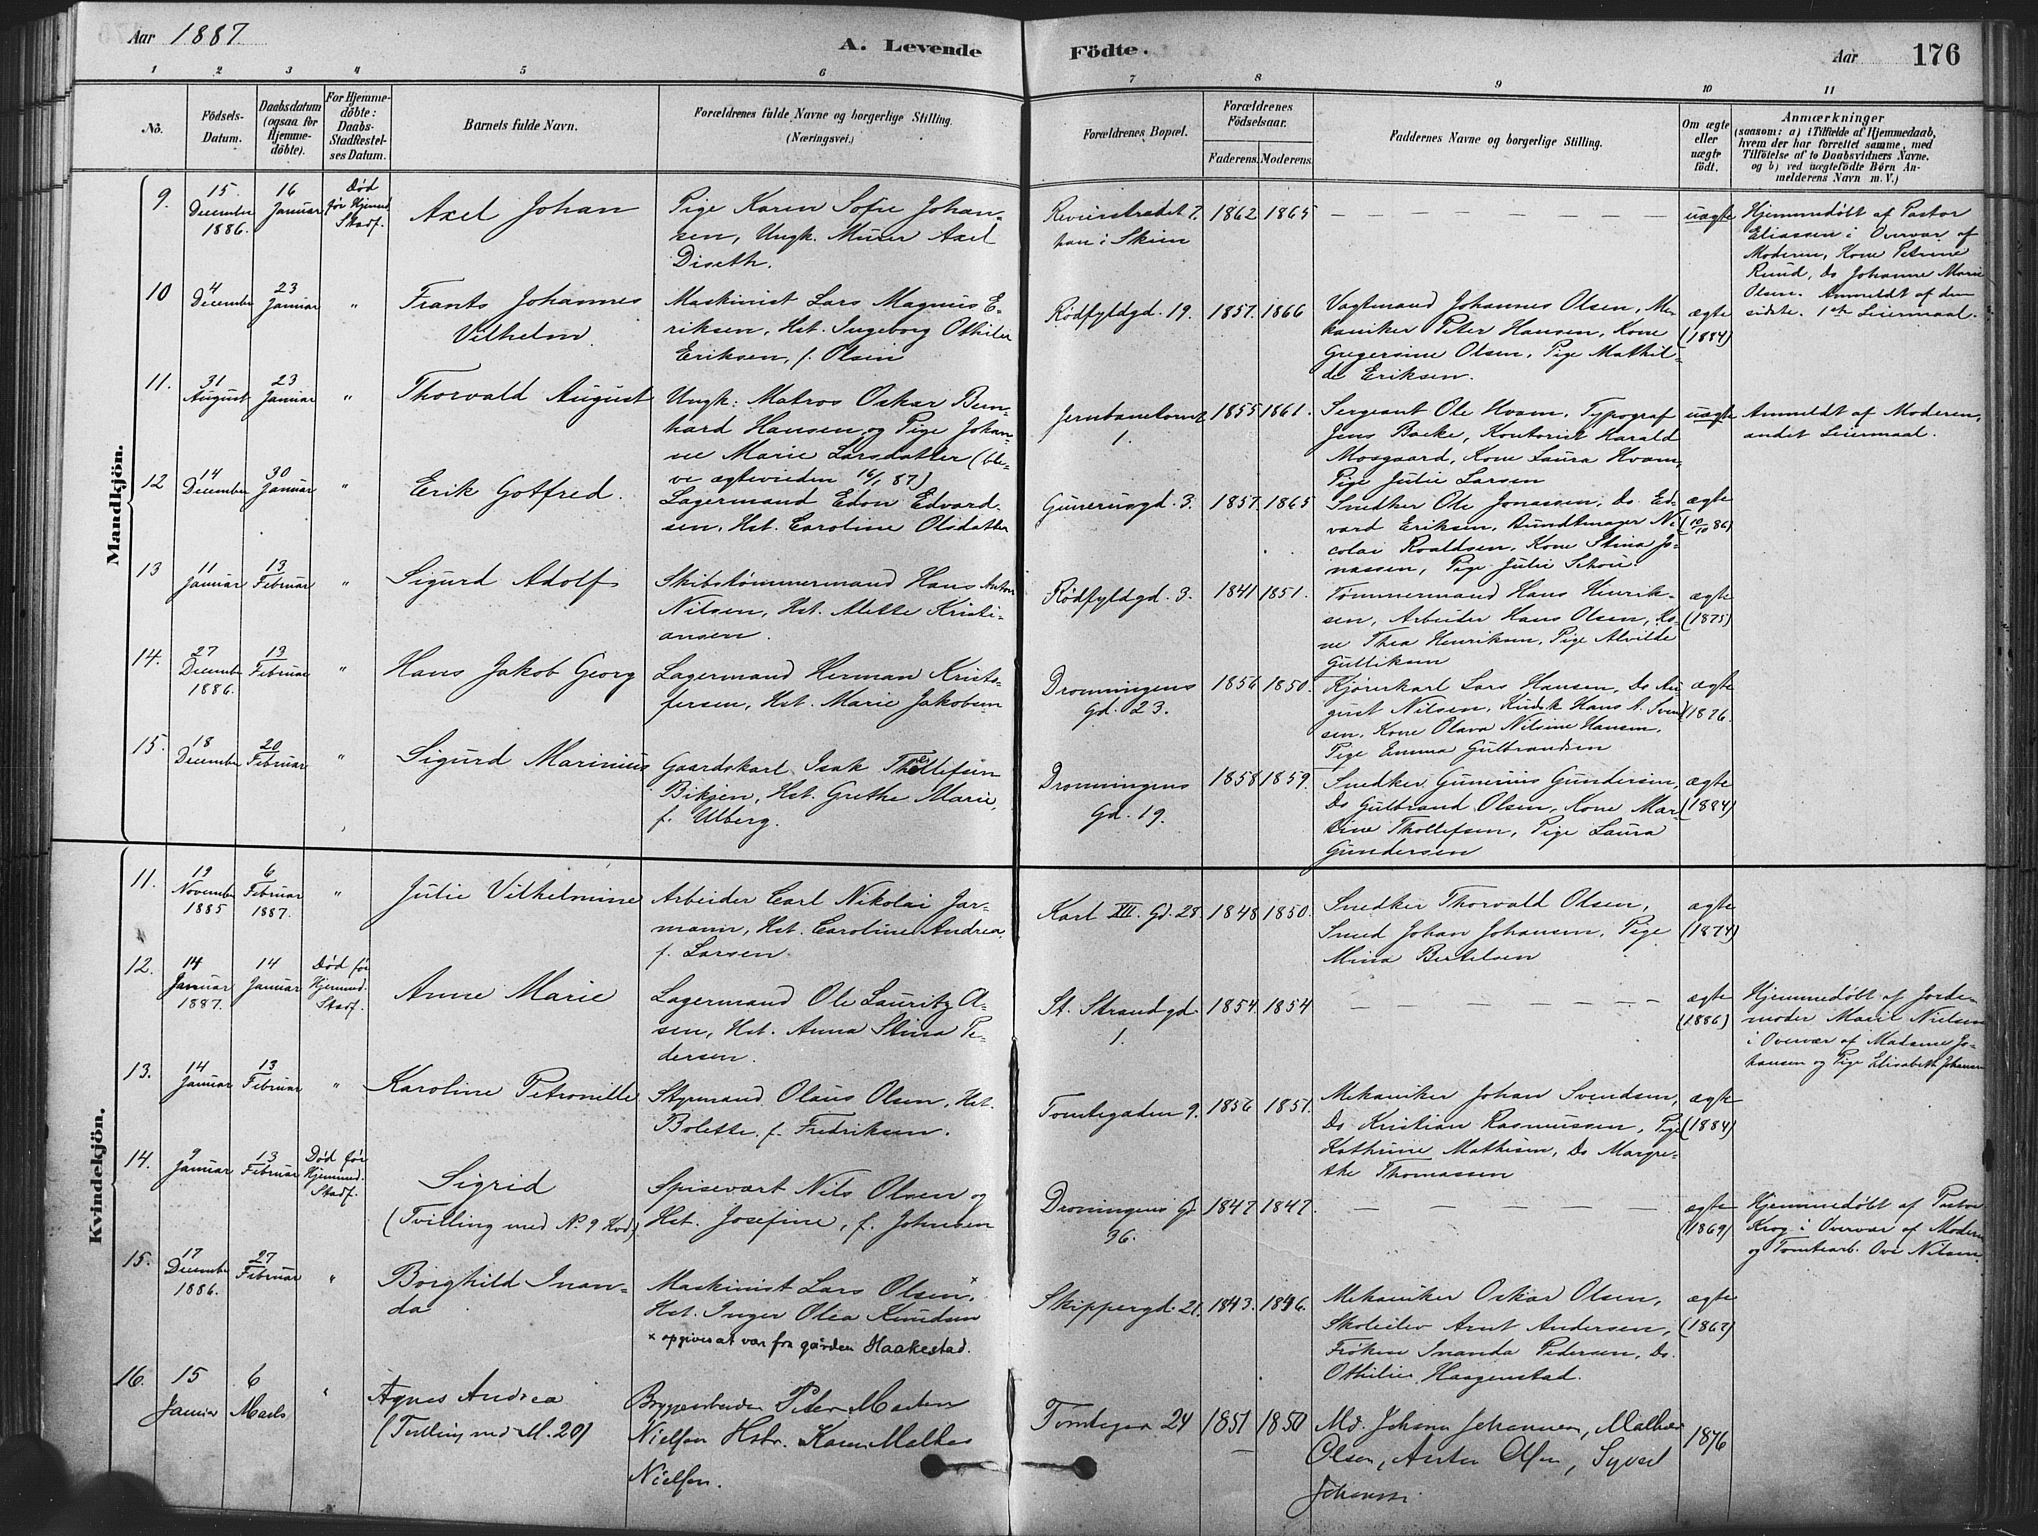 Aar 1887.
A. Levende
Födte.
Aar
176
1 2 3 4 5 6
7 8 9 10 11
No.
Födsels-
Datum.
Daabsdatum
(ogsaa for
Hjemme-
döbte).
For Hjemme-
döbte:
Daabs-
StadRestel-
ses Datum.
Barnets fulde Navn.
Forældrenes fulde Navne og borgerlige Stilling.
(Næringsvei.)
Forældrenes Bopæl.
Forældrenes
Födselsaar.
Faderens. Moderens.
Faddernes Navne og borgerlige Stilling.
Om ægte
eller
uægte
födt.
Anmærkninger
(saasom: a) i Tilfælde af Hjemmedaab,
hvem der har forrettet samme, med
Tilföielse af to Daabsvidners Navne.
og b) ved uægtefödte Börn An-
melderens Navn m. V.)
Mandkjön.
9.
15
December
1886.
16
Januar
Død
før Hjemmed.
Stadf.
Axel Johan
Pige Karen Sofie Johan-
sen, Ungk. Murer Axel
Diseth.
han i Skien
1862 1865
uægte
Hjemmedøbt af Pastor
Eliassen i Overvær af
Moderen, Kone Petrine
Ruud, Do Johanne Marie
Olsen. Anmeldt af den
sidste. 1ste Leiermaal.
10
4
December
23
Januar
"
Frants Johannes
Vilhelm.
Maskinist Lars Magnus E-
riksen, Hst. Ingeborg Othilie
Eriksen, f. Olsen
Rødfyldgd. 19.
1857. 1866
Vagtmand Johannes Olsen, Me-
kaniker Peter Hansen, Kone
Gregersine Olsen, Pige Mathil-
de Eriksen.
ægte
(1884)
11.
31
August
23
Januar
"
Thorvald August
Ungk. Matros Oskar Bern-
hard Hansen og Pige Johan-
ne Marie Larsdatter (ble-
ve ægteviede 16/1 87)
1.
1855 1861.
Sergeant Ole Hvam, Typograf
Jens Backe, Kontorist Harald
Mosgaard, Kone Laura Hvam,
Pige Julie Larsen
uægte
Anmeldt af Moderen,
andet Leiermaal.
12
14
December
30
Januar
"
Erik Gotfred.
Lagermand Edon Edvard-
sen, Hst. Caroline Olsdatter
Gunerusgd. 3.
1857. 1865
Snedker Ole Jonassen, Do Ed-
vard Eriksen, Bundtmager Ni-
colai Roaldsen, Kone Stina Jo-
nassen, Pige Julie Schou
ægte
(10/10 86)
13
11
Januar
13
Februar
"
Sigurd Adolf
Skibstømmermand Hans Anton
Nilsen, Hst. Mette Kristi-
ansen.
Rødfyldgd. 3.
1841 1851.
Tømmermand Hans Hinrik-
sen, Arbeider Hans Olsen, Ko-
ne Thea Henriksen, Pige Alvilde
Gulliksen
ægte
(1875)
14.
27
December
1886.
13
Februar
"
Hans Jakob Georg
Lagermand Herman Kristo-
fersen, Hst. Marie Jakobsen
Dronningens
Gd. 23.
1856 1850.
Kjørerkarl Lars Hansen, Do Au-
gust Nilsen, Hans A. Svend-
sen, Kone Olava Nilsine Hansen,
Pige Emma Gulbrandsen
ægte
1876.
15.
18
December
20
Februar
"
Sigurd Marinius
Gaardskarl Isak Thollefsen
Bikjen, Hst. Grethe Marie,
f. Ulberg.
Dronningens
Gd. 19.
1858 1859.
Snedker Gunerius Gundersen,
Do Gulbrand Olsen, Kone Mar-
tine Thollefsen, Pige Laura
Gundersen
ægte
(1884)
Kvindekjön.
11.
19
November
1885
6
Februar
1887.
"
Julie Vilhelmine
Arbeider Carl Nikolai Jor-
mann, Hst. Caroline Andrea,
f. Larsen.
Karl XII. Gd. 28
1848 1850.
Snedker Thorvald Olsen,
Smed Johan Johansen, Pige
Mina Bertelsen
ægte
(1874)
12.
14
Januar
1887.
14
Januar
Død før
Hjemmed.
Stadf.
Anne Marie
Lagermand Ole Lauritz A-
sen, Hst. Anna Stina Pe-
dersen.
St. Strandgd.
1.
1854. 1854
ægte
(1886)
Hjemmedøbt af Jorde-
moder Marie Nielsen
i Overvær af Madame Jo-
hansen og Pige Elisabeth Johansen
13.
14
Januar
13
Februar
"
Karoline Petronille
Styrmand Olaus Olsen, Hst.
Bolette f. Fredriksen.
Tomtegaden 9.
1856 1851.
Mekaniker Johan Svendsen,
Do Kristian Rasmussen, Pige
Kathrine Mathisen, Do Margre-
the Thomassen
ægte
(1884)
14.
9
Januar
13
Februar
Død før
Hjemmed.
Stadf.
Sigrid
(Tvilling med No. 9 Kvd)
Spisevært Nils Olsen og
Hst. Josefine, f. Johnsen
Dronningens Gd
36.
1847 1847.
ægte
(1869)
Hjemmedøbt af Pastor
Krog i Overvær af Moderen
og Tomtearb. Ove Nilsen.
15.
17
December
1886.
27
Februar
"
Borghild Inan-
da
Maskinist Lars Olsen, x
Hst. Inger Olea Knudsen
x opgives at vær fra gården Haakestad.
Skippergd. 21.
1843. 1846.
Mekaniker Oskar Olsen,
Skoleelev Arnt Andersen,
Frøken Inanda Pedersen, Do
Othilie Haagenstad.
ægte
(1867)
16.
15
Januar
6
Marts
"
Agnes Andrea
(Tvilling med M. 20)
Bryggearbeider Peter Morten
Nielsen Hstr. Karen Mathea
Nielsen.
Tomtegad 24
1851 1850
Md. Johan Johannesen, Mathea
Olsen, Anton Olsen, Syver
Johansen
1876